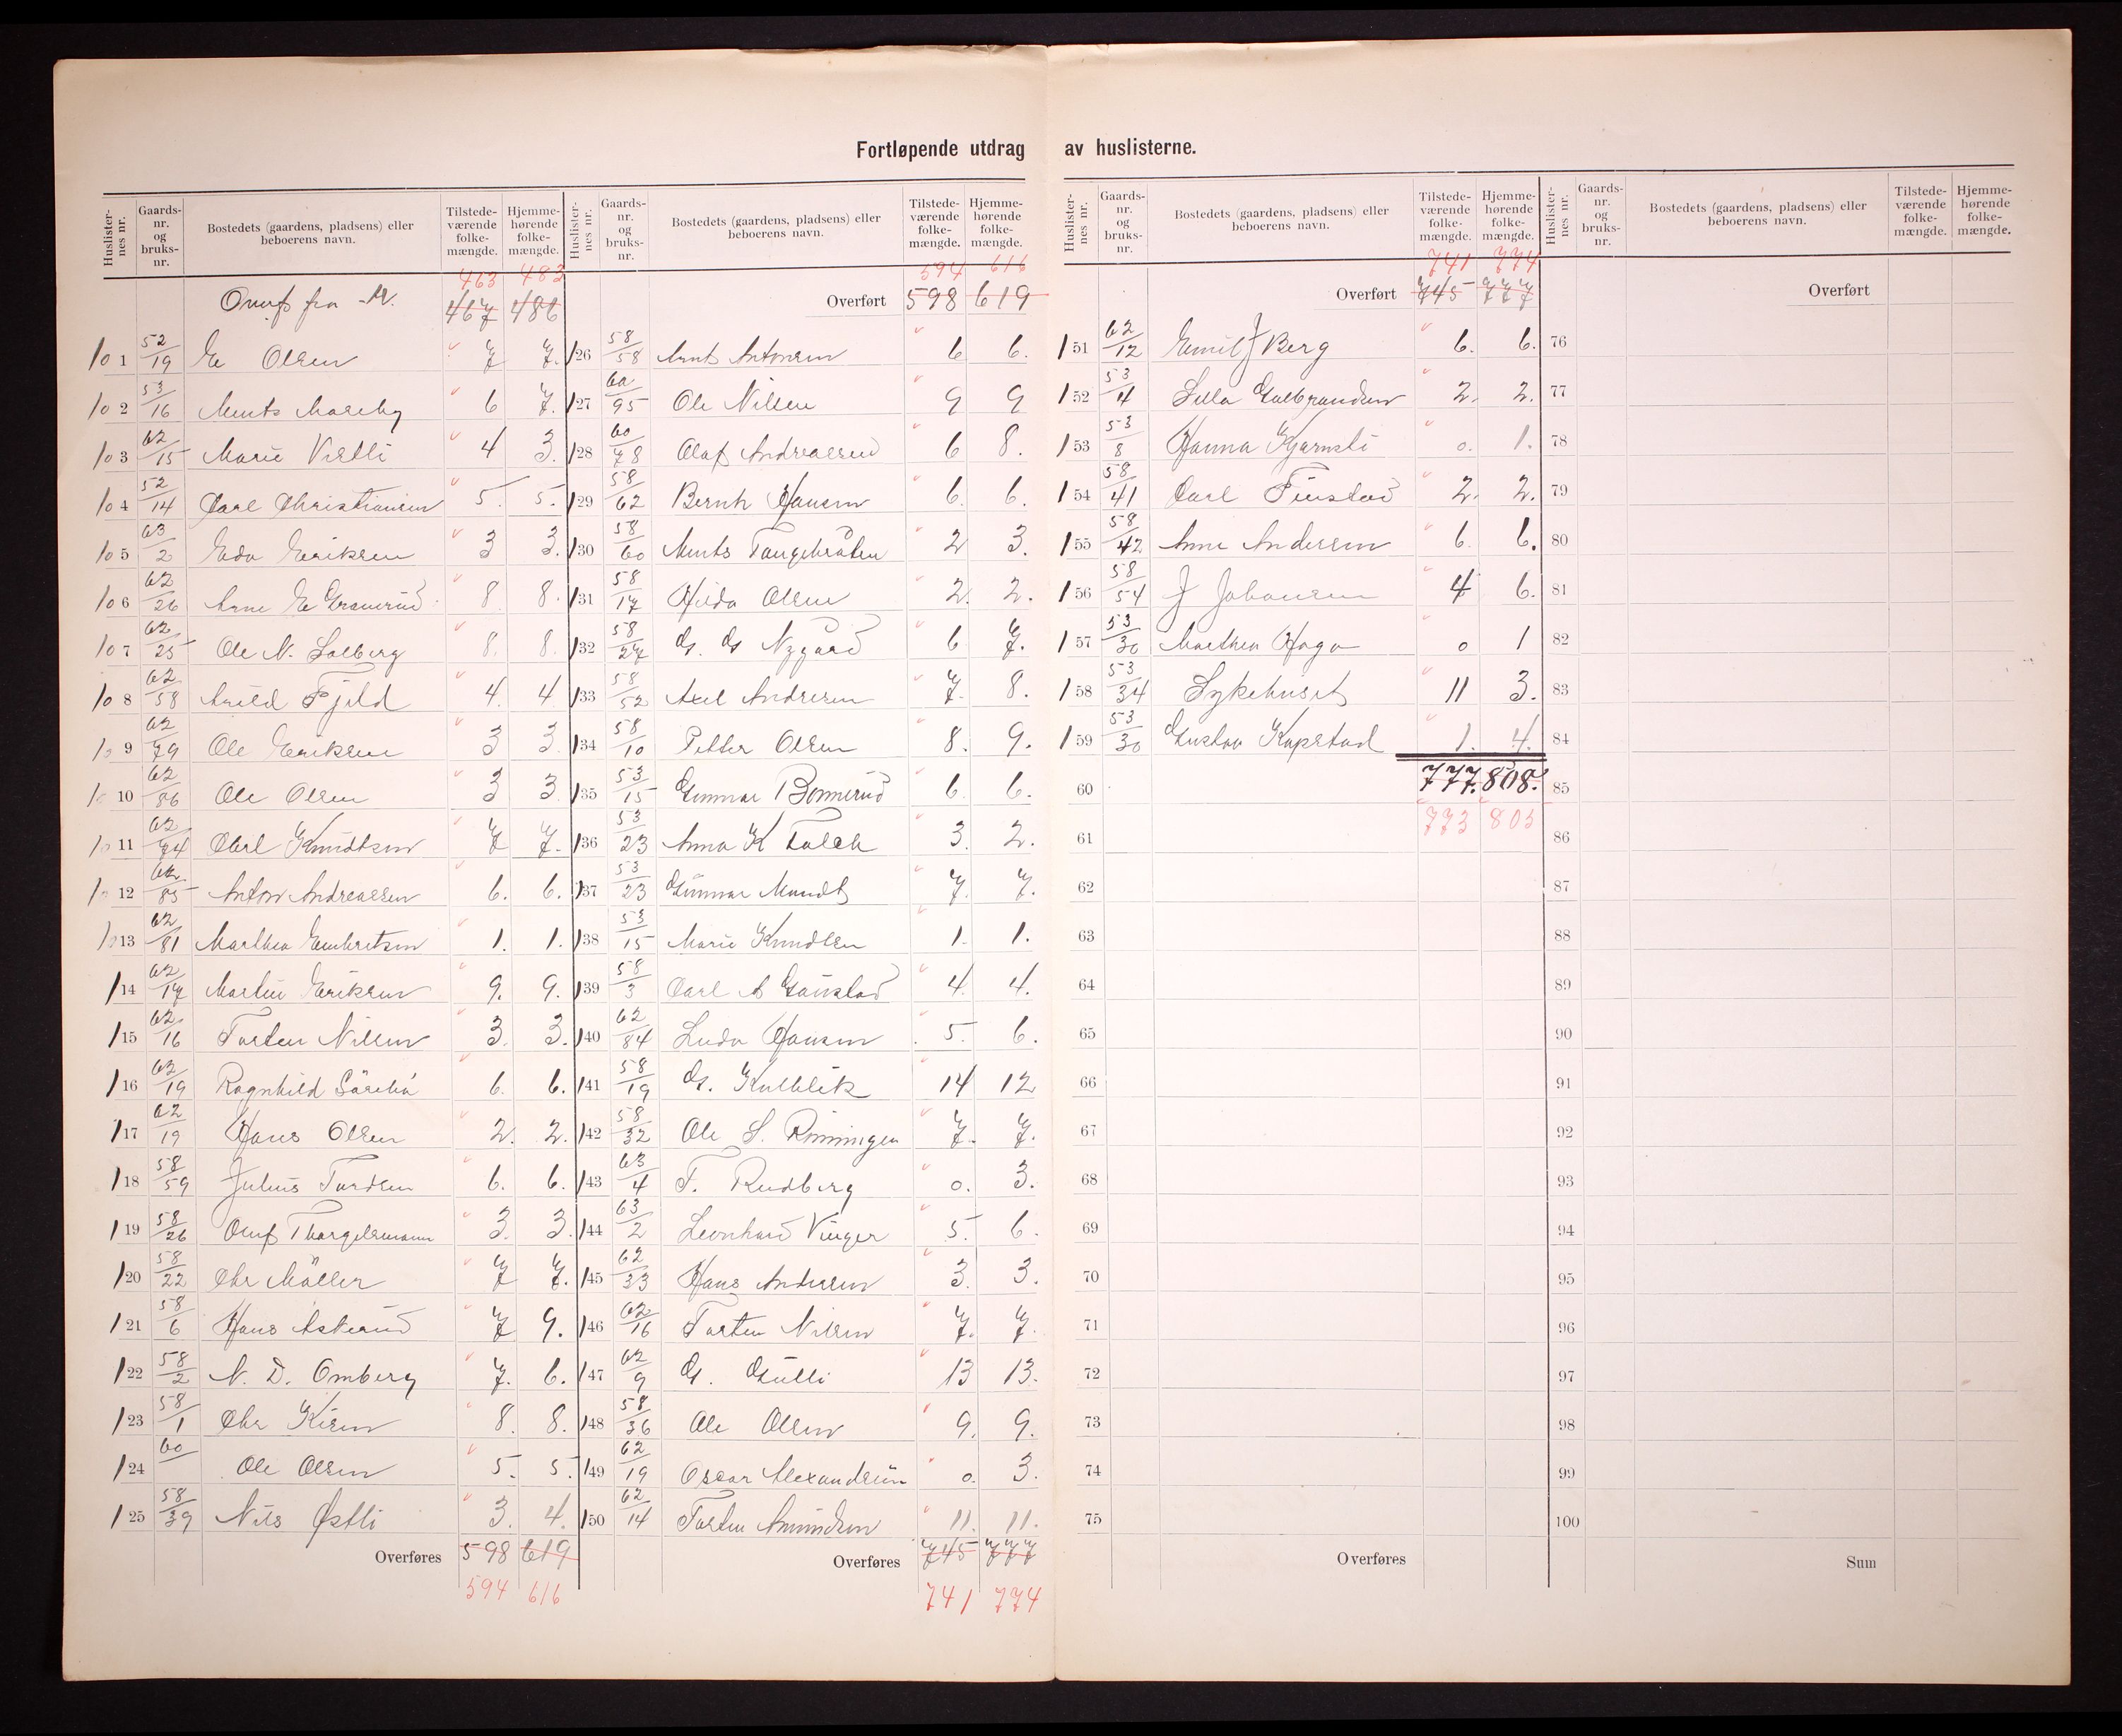 Fortløpende utdrag av huslisterne.
Huslister-nes nr. | Gaards-nr. og bruks-nr. | Bostedets (gaardens, pladsens) eller beboerens navn. | Tilstede-værende folke-mængde. | Hjemme-hørende folke-mængde.
463 483
Overf fra 467 486
101 52/19 E Olsen 7 7.
102 53/16 6 7.
103 62/15 Marie 4 3.
104 52/14 Carl Christiansen 5. 5.
105 63/2 Eda Eriksen 3 3.
106 62/26 Arne E Granerud 8 8.
107 62/25 Ole N. Solberg 8. 8.
108 62/58 Arild Fjeld 4. 4
109 62/79 Ole Eriksen 3 3.
1010 62/86 Ole Olsen 3 3
1011 62/74 Knudtsen 7 7.
1012 62/85 Anton Andreassen 6. 6.
1013 62/81 Marthea Embretsen 1. 1.
114 62/17 Martin Eriksen 9. 9.
115 62/16 Torsten Nilsen 3. 3.
116 62/19 Ragnhild 6. 6.
117 62/19 Hans Olsen 2. 2.
118 58/59 Julius Tordsen 6. 6.
119 58/26 Oluf Thorgelsmoen 3. 3.
120 58/22 Chr Möller 7 7.
121 58/6 Hans Askerud 7 9.
122 58/2 N. D. Omberg 7. 6.
123 58/1 Chr 8. 8.
124 60 Ole Olsen 5. 5.
125 58/39 Nils Østli 3. 4.
Overføres 598 619
594 616
Huslister-nes nr. | Gaards-nr. og bruks-nr. | Bostedets (gaardens, pladsens) eller beboerens navn. | Tilstede-værende folke-mængde. | Hjemme-hørende folke-mængde.
594 616
Overført 598 619
126 58/58 Arnt Antonsen 6 6.
127 60/95 Ole Nilsen 9 9
128 60/78 Olaf Andreassen 6 8.
129 58/62 Bernh Hansen 6. 6.
130 58/60 Tangebråten 2 3.
131 58/17 Hilda Olsen 2. 2.
132 58/27 G. G Nygård 6 7.
133 58/52 Axel Andresen 7. 8.
134 58/10 Petter Olsen 8. 9.
135 53/15 Gunnar Bommerud 6. 6.
136 53/23 Anna K Falch 3. 2.
137 53/23 Gunnar Mundt 7. 7.
138 53/15 Marie Knudsen 1. 1.
139 58/3 Carl A Gaustad 4. 4.
140 62/84 Luda Hansen 5. 6.
141 58/19 G. Kulblik 14 12
142 58/32 Ole S. Rönningen 7. 7.
143 63/4 F. Rudberg 0. 3.
144 63/2 Leonhard Vinger 5. 6.
145 62/33 Hans Andersen 3. 3.
146 62/16 Torsten Nilsen 7. 7.
147 62/9 G. Gulli 13 13.
148 58/36 Ole Olsen 9. 9.
149 62/19 Oscar Alexandersen 0. 3.
150 62/14 Torsten Amundsen 11. 11.
Overføres 745 777
741 774
Huslister-nes nr. | Gaards-nr. og bruks-nr. | Bostedets (gaardens, pladsens) eller beboerens navn. | Tilstede-værende folke-mængde. | Hjemme-hørende folke-mængde.
741 774
Overført 745 777
151 62/12 Emil J Berg 6. 6.
152 53/4 Gulbrandsen 2. 2.
153 53/8 Hanna Kjernsli 0. 1.
154 58/41 Carl Finstad 2. 2.
155 58/42 Anne Andersen 6. 6.
156 58/54 J Johansen 4 6.
157 53/30 Marthea Haga 0 1
158 53/34 Sykehuset 11 3.
159 53/30 Gustav Kopstad 1. 4.
60 777. 808.
773 805
61
62
63
64
65
66
67
68
69
70
71
72
73
74
75
Overføres
Huslister-nes nr. | Gaards-nr. og bruks-nr. | Bostedets (gaardens, pladsens) eller beboerens navn. | Tilstede-værende folke-mængde. | Hjemme-hørende folke-mængde.
Overført
76
77
78
79
80
81
82
83
84
85
86
87
88
89
90
91
92
93
94
95
96
97
98
99
100
Sum